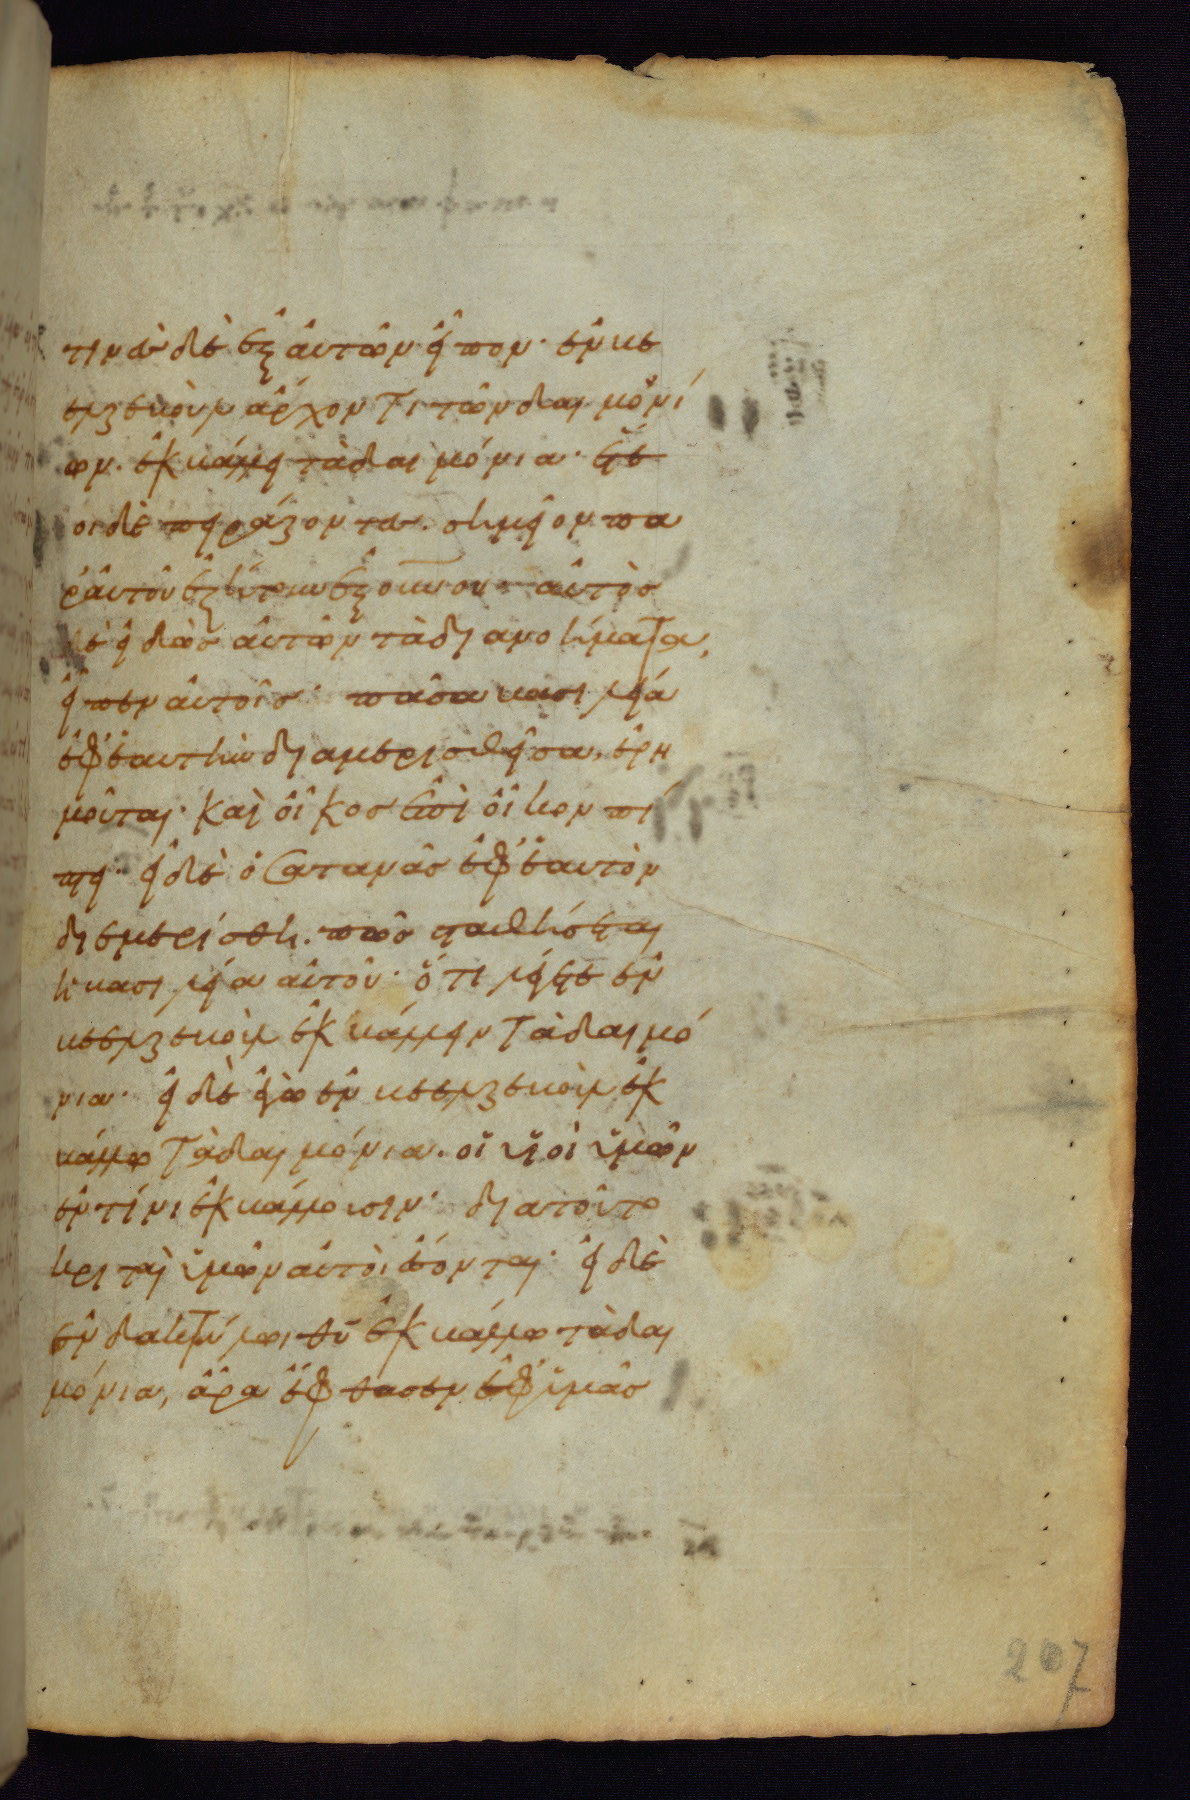 τινὲσ δὲ ἐξ αὐτῶν εἶπον· ἐν βε
ελζεβοὺλ ἄρχοντι τῶν δαιμονί
ων. ἐκβάλλει τὰ δαιμόνια· ἕτε
ροι δὲ πειράζοντεσ. σημεῖον πα
ρ' αὐτοῦ ἐζήτουν ἐξ οὐνου· αὐτὸσ
δὲ εἰδὼσ αὐτῶν τὰ διανοήματα,
εἶπεν αὐτοῖσ· πᾶσα βασιλεία
ἐφ' ἑαυτὴν διαμερισθεῖσα, ἐρη
μοῦται· καὶ οἶκοσ ἐπὶ οἶκον πί
πτει· εἰ δὲ ὁ σατανᾶσ ἐφ' ἑαυτὸν
διεμερίσθη. πῶσ σταθήσεται
ἡ βασιλεία αὐτοῦ· ὅτι λέγετε ἐν
βεελζεβοὺλ ἐκβάλλειν τὰ δαιμό
νια· εἰ δὲ ἐγὼ ἐν βεελζεβοὺλ ἐκ
βάλλω τὰ δαιμόνια. οἱ υἱοὶ ὑμῶν
ἐν τίνι ἐκβάλλουσιν· διὰ τοῦτο
κριταὶ ὑμῶν αὐτοὶ ἔσονται· εἰ δὲ
ἐν δακτύλωι θυ ἐκβάλλω τὰ δαι
μόνια, ἄρα ἔφθασεν ἐφ' ὑμᾶσ
207